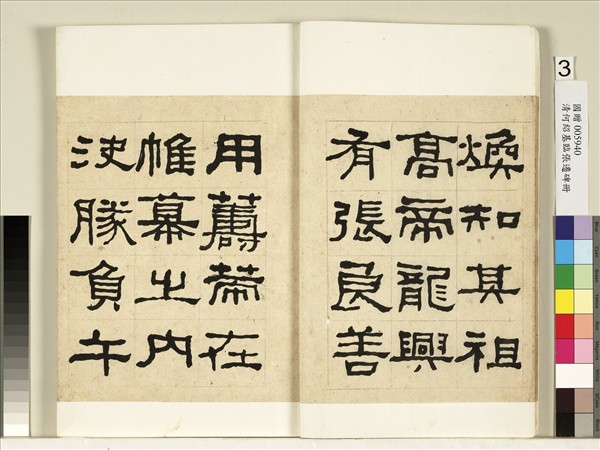 煥知其祖
髙帝龍興
有張良善
用籌策在
帷幕之内
決勝負千
3
國贈 005940
清何紹基臨張遷碑冊